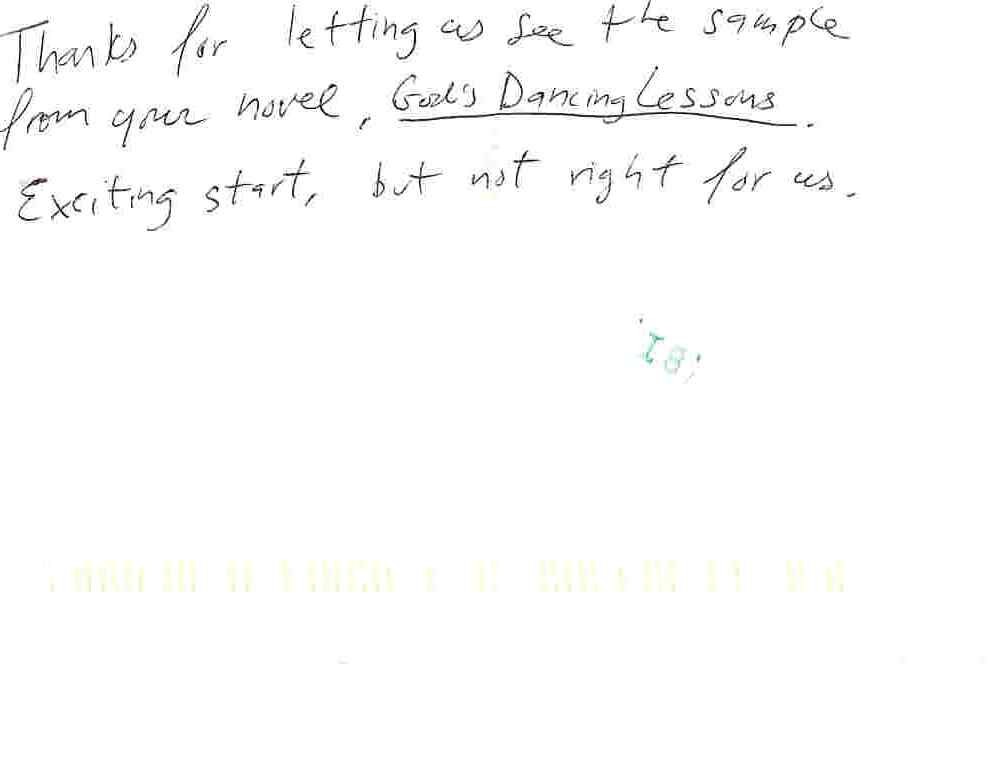 Thanks for letting us see the sample
from your novel, God's Dancing Lessons.
Exciting start, but not right for us.